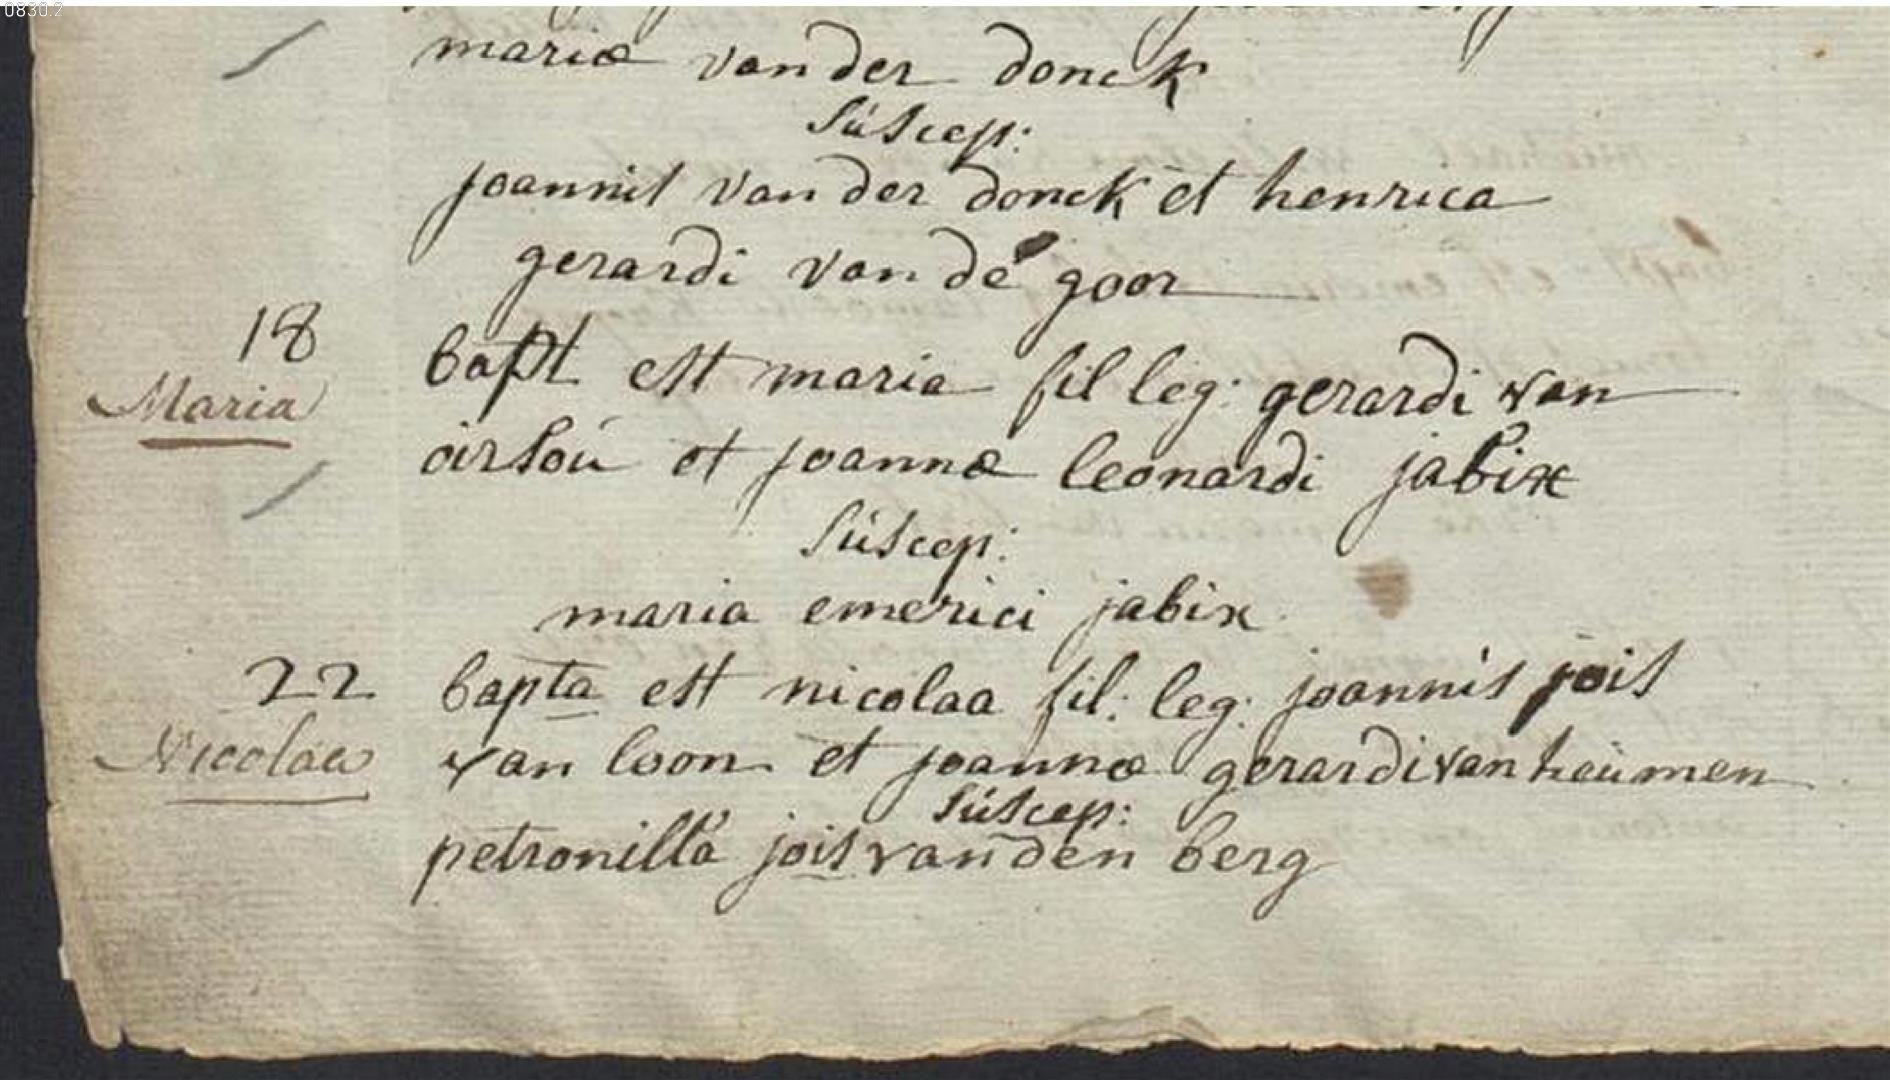 0830.2
mariæ van der donck
suscep:
joannis van der donck et henrica
gerardi van de goor
18
bapt est maria fil leg: gerardi van
Maria
oirsou et joannæ leonardi jabix
suscep:
maria emerici jabix
22 bapta est nicolaa fil: leg: joannis jois
Nicolaa van loon et joannæ gerardi van heumen
suscep:
petronilla jois van den berg